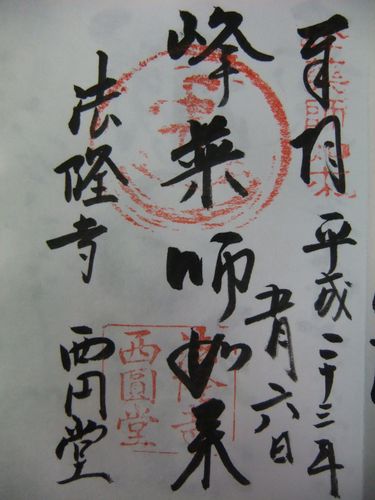 平成二十三年
月六日
峰薬師如来
法隆寺 西円堂
法隆寺
西圓堂